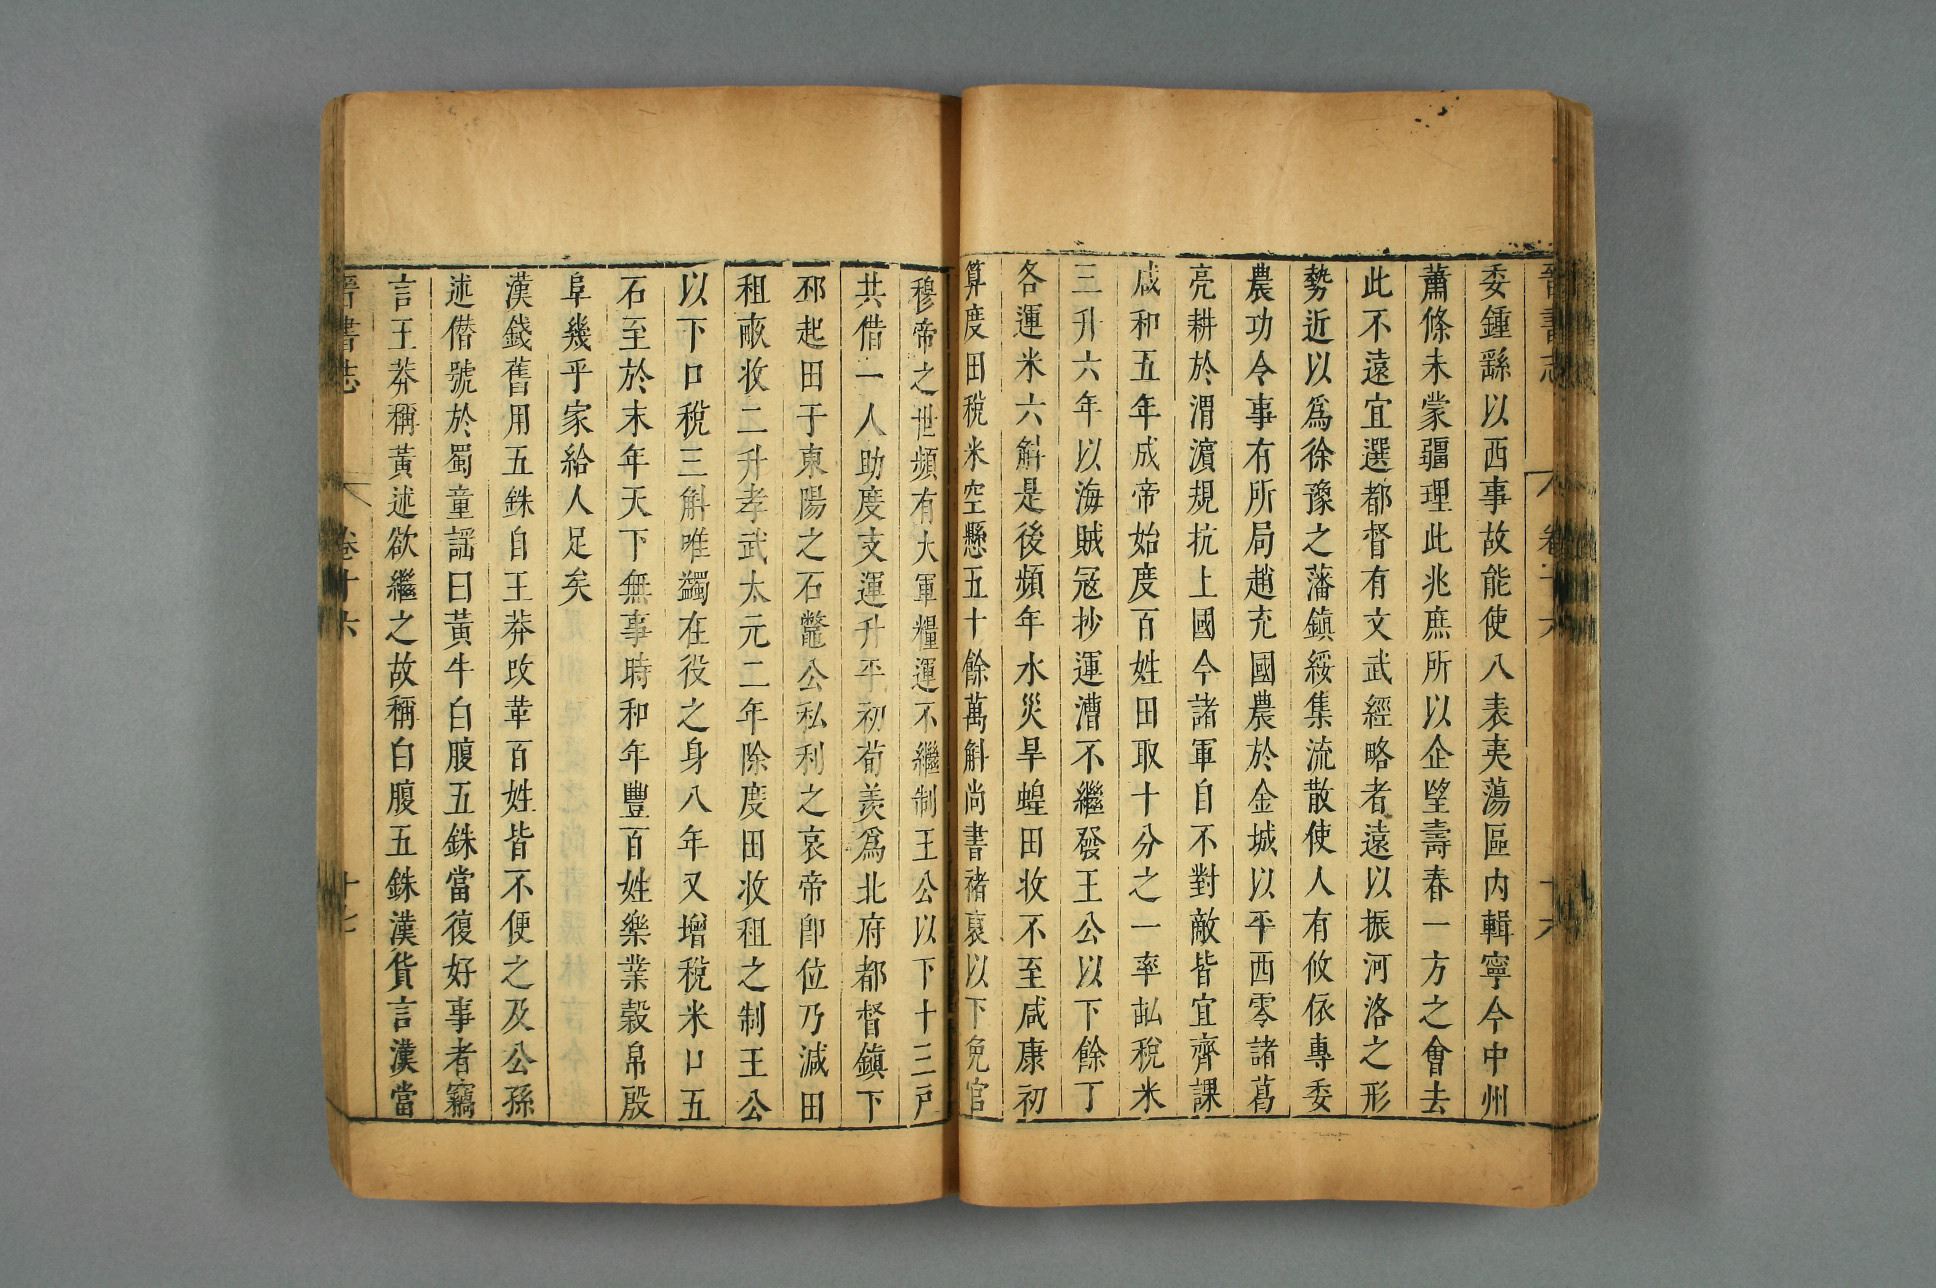 晉書志 卷二十六 十六
委鍾繇以西事故能使八表夷蕩區内輯寧今中州
蕭條未蒙疆理此兆庶所以企望壽春一方之會去
此不遠宜選都督有文武經略者遠以振河洛之形
勢近以爲徐豫之藩鎮綏集流散使人有攸依專委
農功令事有所局趙充國農於金城以平西零諸葛
亮耕於渭濵規抗上國今諸軍自不對敵皆宜齊課
咸和五年成帝始度百姓田取十分之一率畝税米
三升六年以海賊冦抄運漕不繼發王公以下餘丁
各運米六斛是後頻年水災旱蝗田收不至咸康初
算度田税米空懸五十餘萬斛尚書褚裒以下免官
穆帝之世頻有大軍糧運不繼制王公以下十三戸
共借一人助度支運升平初荀羨爲北府都督鎮下
邳起田于東陽之石鼈公私利之哀帝即位乃減田
租畝收二升孝武太元二年除度田收租之制王公
以下口税三斛唯蠲在役之身八年又增税米口五
石至於末年天下無事時和年豐百姓樂業穀帛殷
阜幾乎家給人足矣
漢錢舊用五銖自王莽改革百姓皆不便之及公孫
述僭號於蜀童謡曰黃牛白腹五銖當復好事者竊
言王莽稱黃述欲繼之故稱白腹五銖漢貨言漢當
晉書志 卷廿六 十七